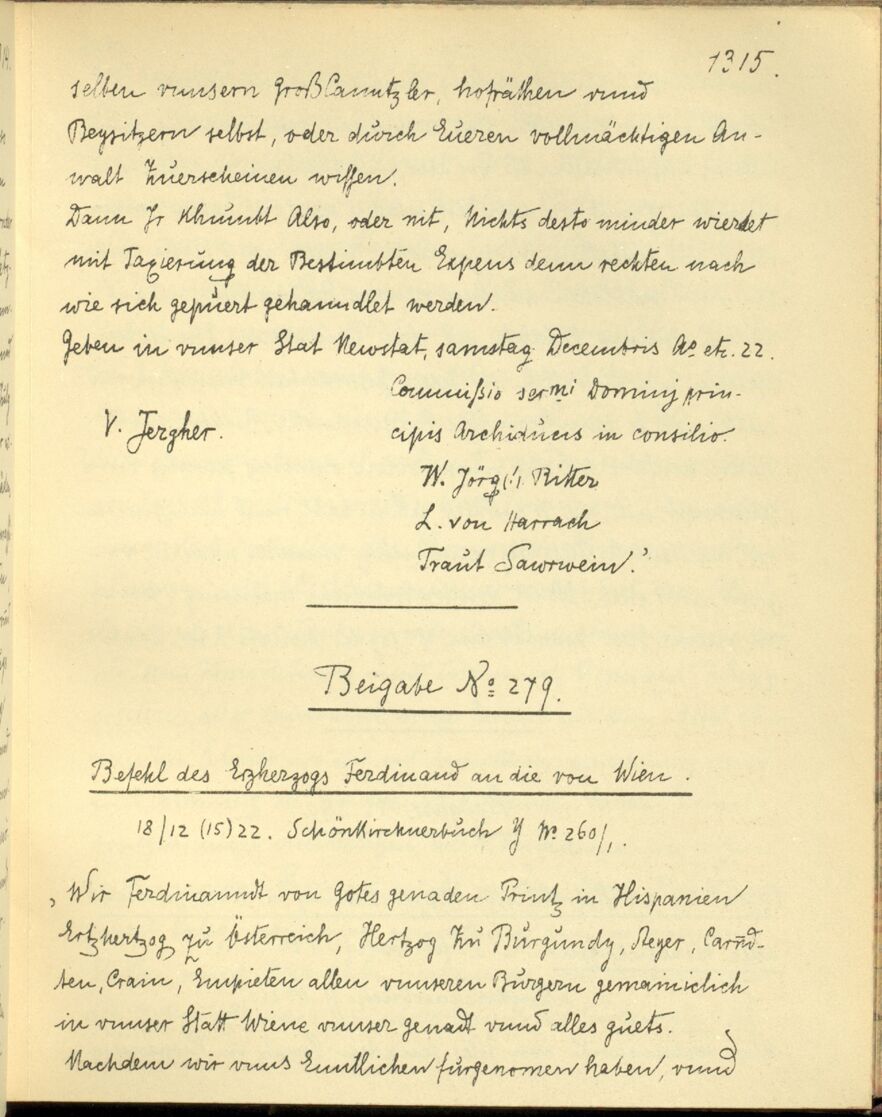 1315.
selben vnnsern GroßCanntzler, hofräthen vnnd
Beysitzern selbst, oder durch Eueren vollmächtigen An-
walt Zuerscheinen wissen.
Dann Jr Khumbt Also, oder nit, Nichts desto minder wierdet
mit Taxierung der Bestimbten Expens denn rechten nach
wie sich gepuert gehanndlet werden.
Geben in vnnser Stat Newstat, samstag Decembris Ao etc. 22.
Commißio sermi Dominj prin-
V. Jergher. cipis Archiducis in consilio.
W. Jörg (!) Ritter
L. von Harrach
Traut Sawrwein.'
Beigabe No 279.
Befehl des Erzherzogs Ferdinand an die von Wien.
18/12 (15)22. Schönkirchnerbuch No 260/1.
'Wir Ferdinanndt von Gotes genaden Printz in Hispanien
Ertzhertzog zu Österreich, Hertzog Zu Burgundy, Steyer, Carnd-
ten, Crain, Empieten allen vnnseren Burgern gemainiclich
in vnnser Statt Wienn vnnser genadt vnnd alles guets.
Nachdem wir vnns Enntlichen furgenomen haben, vnnd